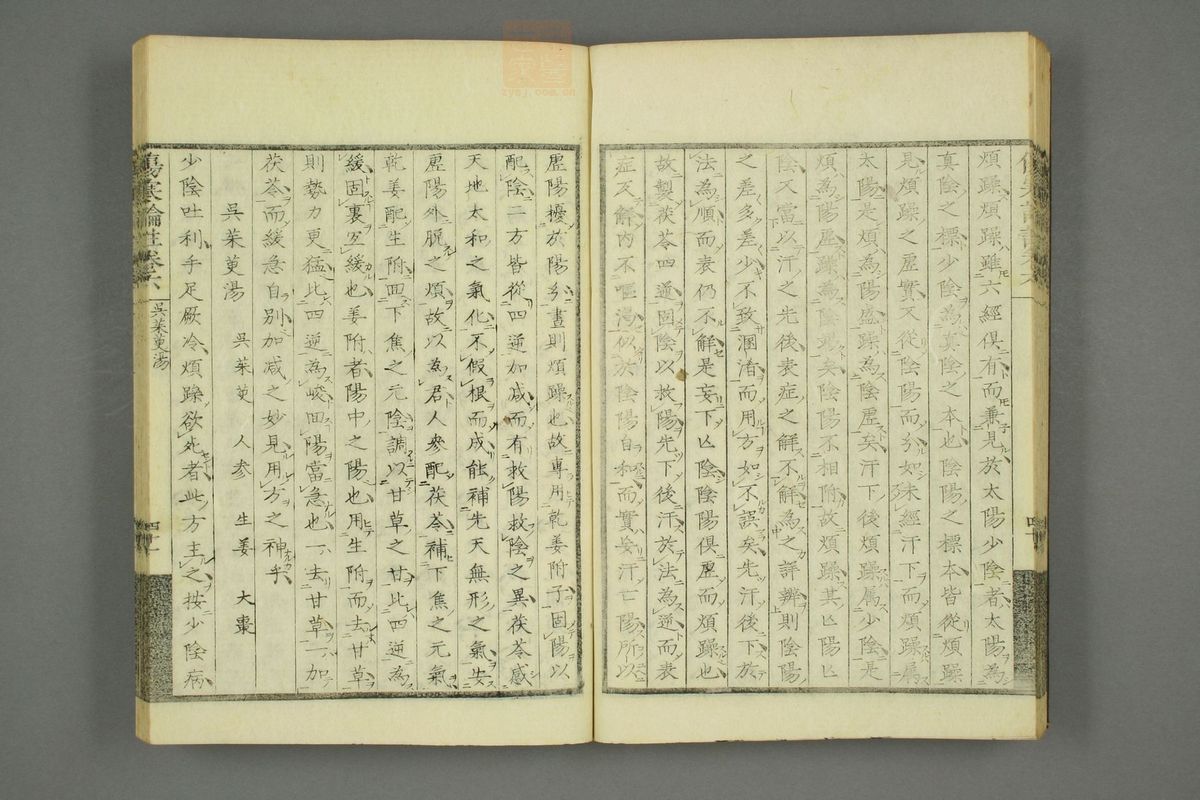 煩躁煩躁雖六經俱有而兼見於太陽少陰者太陽為
真陰之標少陰為真陰之本也陰陽之標本皆從煩躁
見煩躁之虛實又從陰陽而分如未經汗下而煩躁属
太陽是煩為陽盛躁為陰虛矣汗下後煩躁属少陰是
煩為陽虛躁為陰竭矣陰陽不相附故煩躁其亾陽亾
陰又當以汗之先後表症之解不解為之詳辨則陰陽
之差多差少不致溷淆而用方如不誤矣先汗後下於
法為順而表仍不解是妄下亾陰陰陽俱虛而煩躁也
故製茯苓四逆固陰以救陽先下後汗於法為逆而表
症反解內不嘔渴似於陰陽自和而實妄汗亡陽所以
虛陽擾於陽分晝則煩躁也故專用乾姜附子固陽以
配陰二方皆從四逆加减而有救陽救陰之異茯苓感
天地太和之氣化不假根而成能補先天無形之氣安
虛陽外脫之煩故以為君人參配茯苓補下焦之元氣
乾姜配生附回下焦之元陰調以甘草之甘比四逆為
緩固裏宐緩也姜附者陽中之陽也用生附而去甘草
則勢力更猛比四逆為峻回陽當急也一去甘草一加
茯苓而緩急自別加减之妙見用方之神乎
吳茱萸湯
吳茱萸 人參 生姜 大棗
少陰吐利手足厥冷煩躁欲死者此方主之按少陰病
傷寒論註卷六
吳茱萸湯
四十一
四十
zysj.com.cn